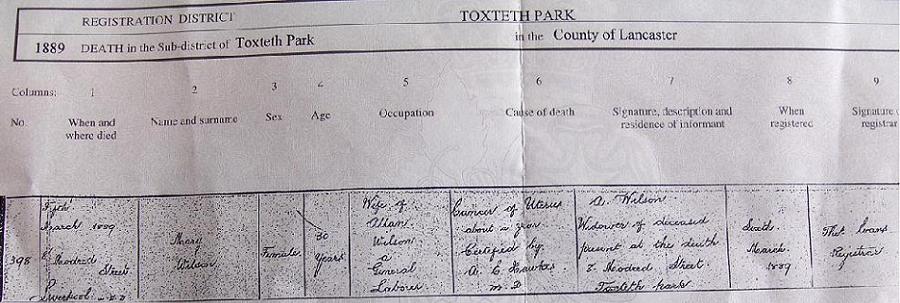 REGISTRATION DISTRICT TOXTETH PARK
1889 DEATH in the Sub-district of Toxteth Park in the County of Lancaster
Columns: 1 2 3 4 5 6 7 8 9
No. When and where died Name and surname Sex Age Occupation Cause of death Signature, description and residence of informant When registered Signature registrar
398
March 1889
Street
Mary
Wilson
Female
30
Years
Wife of
Allan
Wilson
a
General
Labourer
Cancer of Uterus
about a year
Certified by
M.D.
A. Wilson
Widower of deceased
present at the death
Street
Toxteth Park
March
1889
Registrar